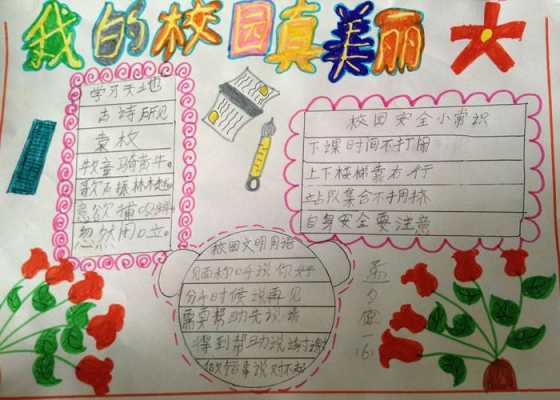 我的校园真美丽
学习天地
古诗所见
袁枚
牧童骑黄牛。
意欲捕鸣蝉
忽然闭口立。
校园安全小常识
下课时间不打闹
上下楼梯靠右行
站队集合不拥挤
自身安全要注意
校园文明用语
见面称呼说你好
分手时候说再见
需要帮助先说请
得到帮助说谢谢
做错事说对不起